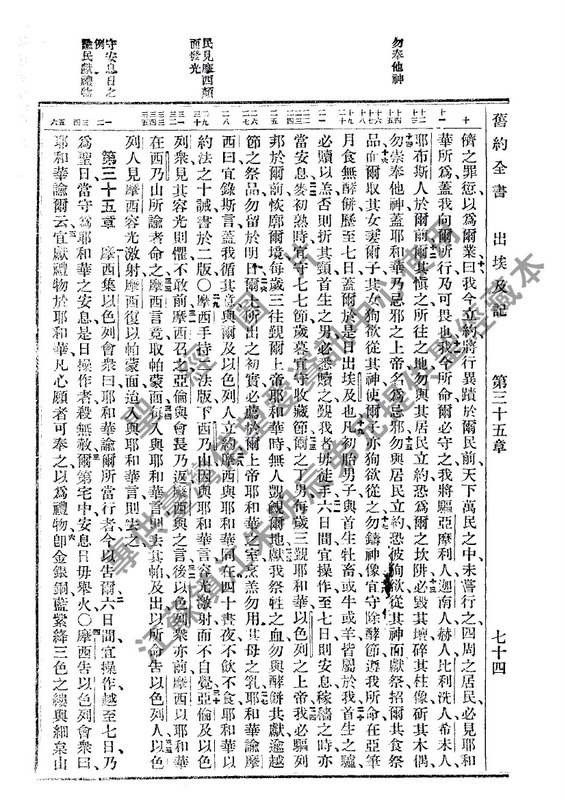 舊約全書　出埃及記　第三十五章　七十四
勿奉他神
民見摩西顏
面發光
守安息日之
例
諭民獻禮物
儕之罪愆以爲爾業曰我今立約將行異蹟於爾民前天下萬民之中未嘗行之四周之居民必見耶和
華所爲蓋我向爾所行乃可畏也我今所命爾必守之我將驅亞摩利人迦南人赫人比利洗人希未人
耶布斯人於爾前其愼之所往之地勿與其居民立約恐爲爾之坎阱必毀其壇碎其柱像斫其木偶
勿崇奉他神蓋耶和華乃忌邪之上帝名爲忌邪勿與居民立約恐彼狥欲從其神而獻祭招爾共食祭
品而取其女妻爾子其女狥欲從其神使爾子亦狥欲從之勿鑄神像宜守除酵節遵我所命在亞筆
月食無酵餅歷至七日蓋爾於是月出埃及也凡初胎男子與首生牡畜或牛或羊皆屬於我首生之驢
必贖以羔否則折其頸首生之男必悉贖之覲我者毋徒手六日間宜操作至七日則安息稼穡之時亦
當安息麥初熟時宜守七七節歲暮宜守收藏節爾之丁男每歲三覲耶和華以色列之上帝我必驅列
邦於爾前恢廓爾境每歲三往覲爾上帝耶和華時無人覬覦爾地獻我祭牲之血勿與酵餅共獻逾越
節之祭品勿留於明日土所出之初實必薦於爾上帝耶和華室烹羔勿用其母之乳耶和華諭摩
西曰宜錄斯言蓋我循其意與爾及以色列人立約摩西與耶和華同在四十晝夜不飲不食耶和華以
約法之十誡書於二版○摩西手持二法版下西乃山因與耶和華言容光激射而不自覺亞倫及以色
列衆見其容光則懼不敢前摩西召之亞倫與會長乃返摩西與之言後以色列衆亦前摩西以耶和華
在西乃山所諭者命之摩西言竟取帕蒙面每入與耶和華言則去其帕及出以所命告以色列人以色
列人見摩西容光激射摩西復以帕蒙面迨入與耶和華言則去之
第三十五章　摩西集以色列會衆曰耶和華諭爾所當行者今以告爾六日間宜操作越至七日乃
爲聖日當守爲耶和華之安息是日操作者殺無赦爾第宅中安息日毋舉火○摩西告以色列會衆曰
耶和華諭爾云宜獻禮物於耶和華凡心願者可奉之以爲禮物卽金銀銅藍紫絳三色之縷與細枲山